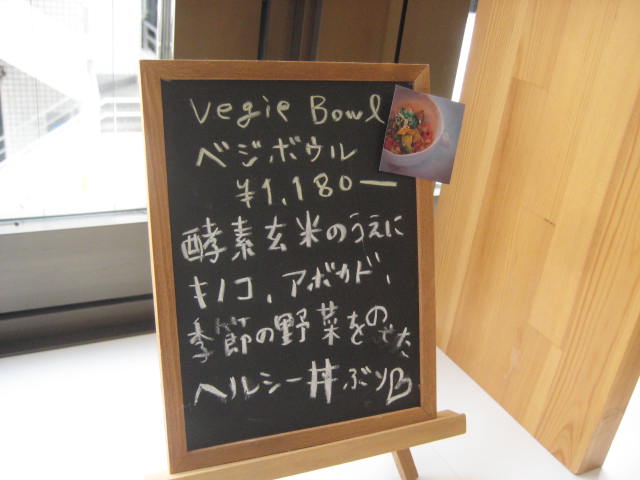 Vegie Bowl
ベジボウル
¥1,180ー
酵素玄米のうえに
キノコ、アボカド、
季節の野菜をのせた
ヘルシー丼ぶり